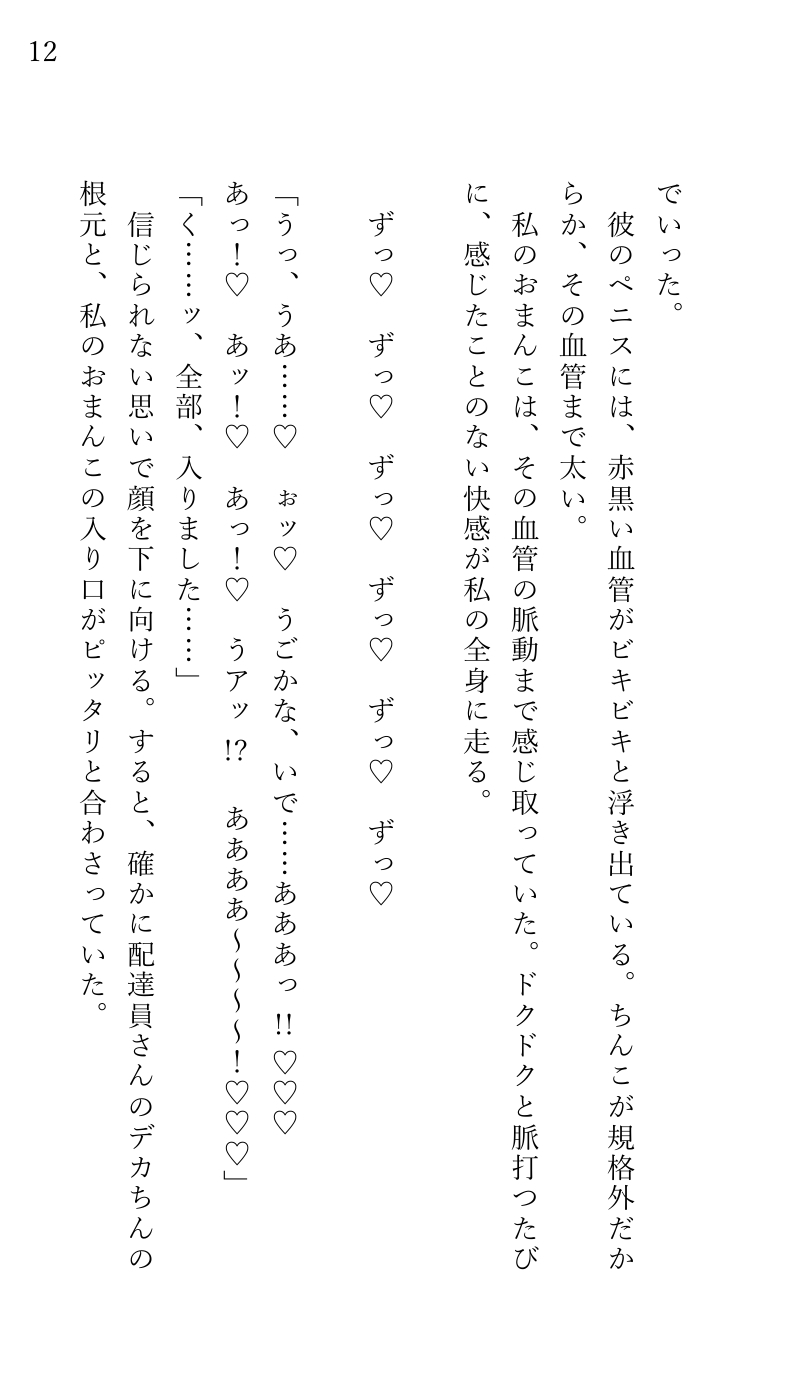 12
でいった。
　彼のペニスには、赤黒い血管がビキビキと浮き出ている。ちんこが規格外だか
らか、その血管まで太い。
　私のおまんこは、その血管の脈動まで感じ取っていた。ドクドクと脈打つたび
に、感じたことのない快感が私の全身に走る。
　ずっ♡　ずっ♡　ずっ♡　ずっ♡　ずっ♡　ずっ♡
「うっ、うあ……♡　ぉッ♡　うごかな、いで……あああっ!!♡♡♡
あっ！♡　あッ！♡　あっ！♡　うアッ!?　ああああ〜〜〜〜！♡♡♡」
「く……ッ、全部、入りました……」
　信じられない思いで顔を下に向ける。すると、確かに配達員さんのデカちんの
根元と、私のおまんこの入り口がピッタリと合わさっていた。